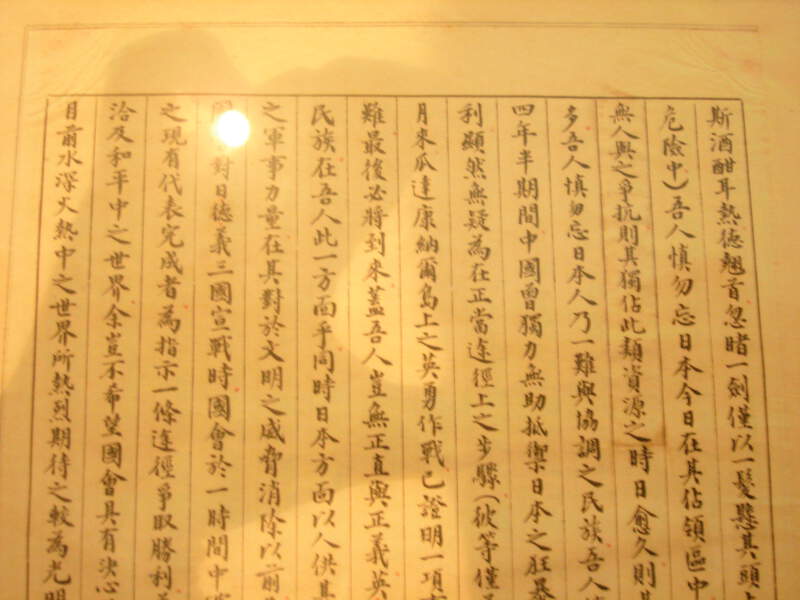 斯酒酣耳熱德翹首忽睹一劍僅以一髮懸其頭
危險中)吾人慎勿忘日本今日在其佔領區中
無人與之爭抗則其獨佔此類資源之時日愈久則
多吾人慎勿忘日本人乃一難與協調之民族吾人
四年半期間中國曾獨力無助抵禦日本之狂暴
利顯然無疑為在正當途徑上之步驟(彼等僅
月來瓜達康納爾島上之英勇作戰已證明一項
難最後必將到來蓋吾人豈無正直與正義英
民族在吾人此一方面乎同時日本方面以人供其
之軍事力量在其對於文明之威脅消除以前
國對日德義三國宣戰時國會於一時間中
之現有代表完成者為指示一條途徑爭取勝利
洽及和平中之世界余豈不希望國會具有決心
目前水深火熱中之世界所熱烈期待之較為光明